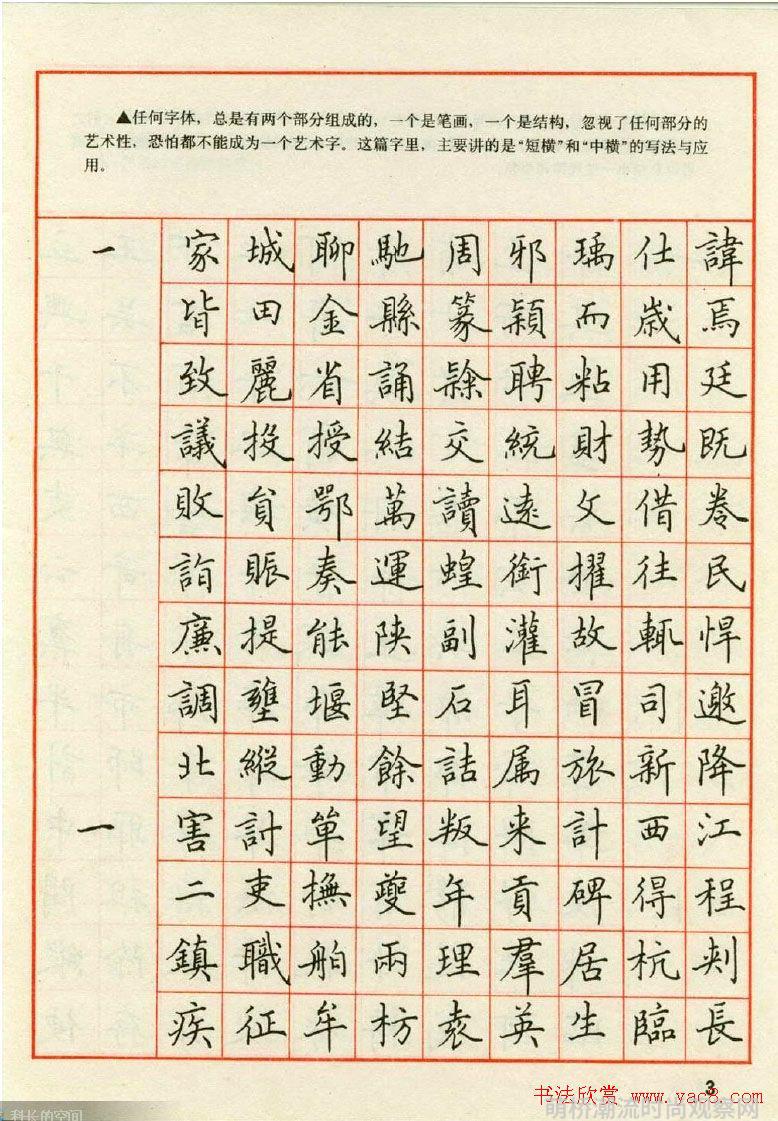 ▲任何字体，总是有两个部分组成的，一个是笔画，一个是结构，忽视了任何部分的
艺术性，恐怕都不能成为一个艺术字。这篇字里，主要讲的是“短横”和“中横”的写法与应
用。
一 家 城 聊 馳 周 邪 瑀 仕 諱
皆 田 金 縣 篆 穎 而 歲 焉
致 麗 省 誦 聘 粘 用 廷
議 投 授 結 交 統 財 勢 既
敗 貟 鄂 萬 讀 遠 文 借 卷
詣 賑 奏 運 蝗 銜 擢 往 民
廉 提 能 陝 副 灌 故 輒 悍
調 壅 堰 堅 石 耳 冒 司 邀
北 縱 動 餘 詰 属 旅 新 降
一 害 討 單 望 叛 来 計 西 江
二 吏 撫 夔 年 貢 碑 得 程
鎮 職 舶 兩 理 羣 居 杭 刺
疾 征 牟 枋 袁 英 生 臨 長
3
书法欣赏 www.yac8.com
萌桥潮流时尚观察网
科长的空间